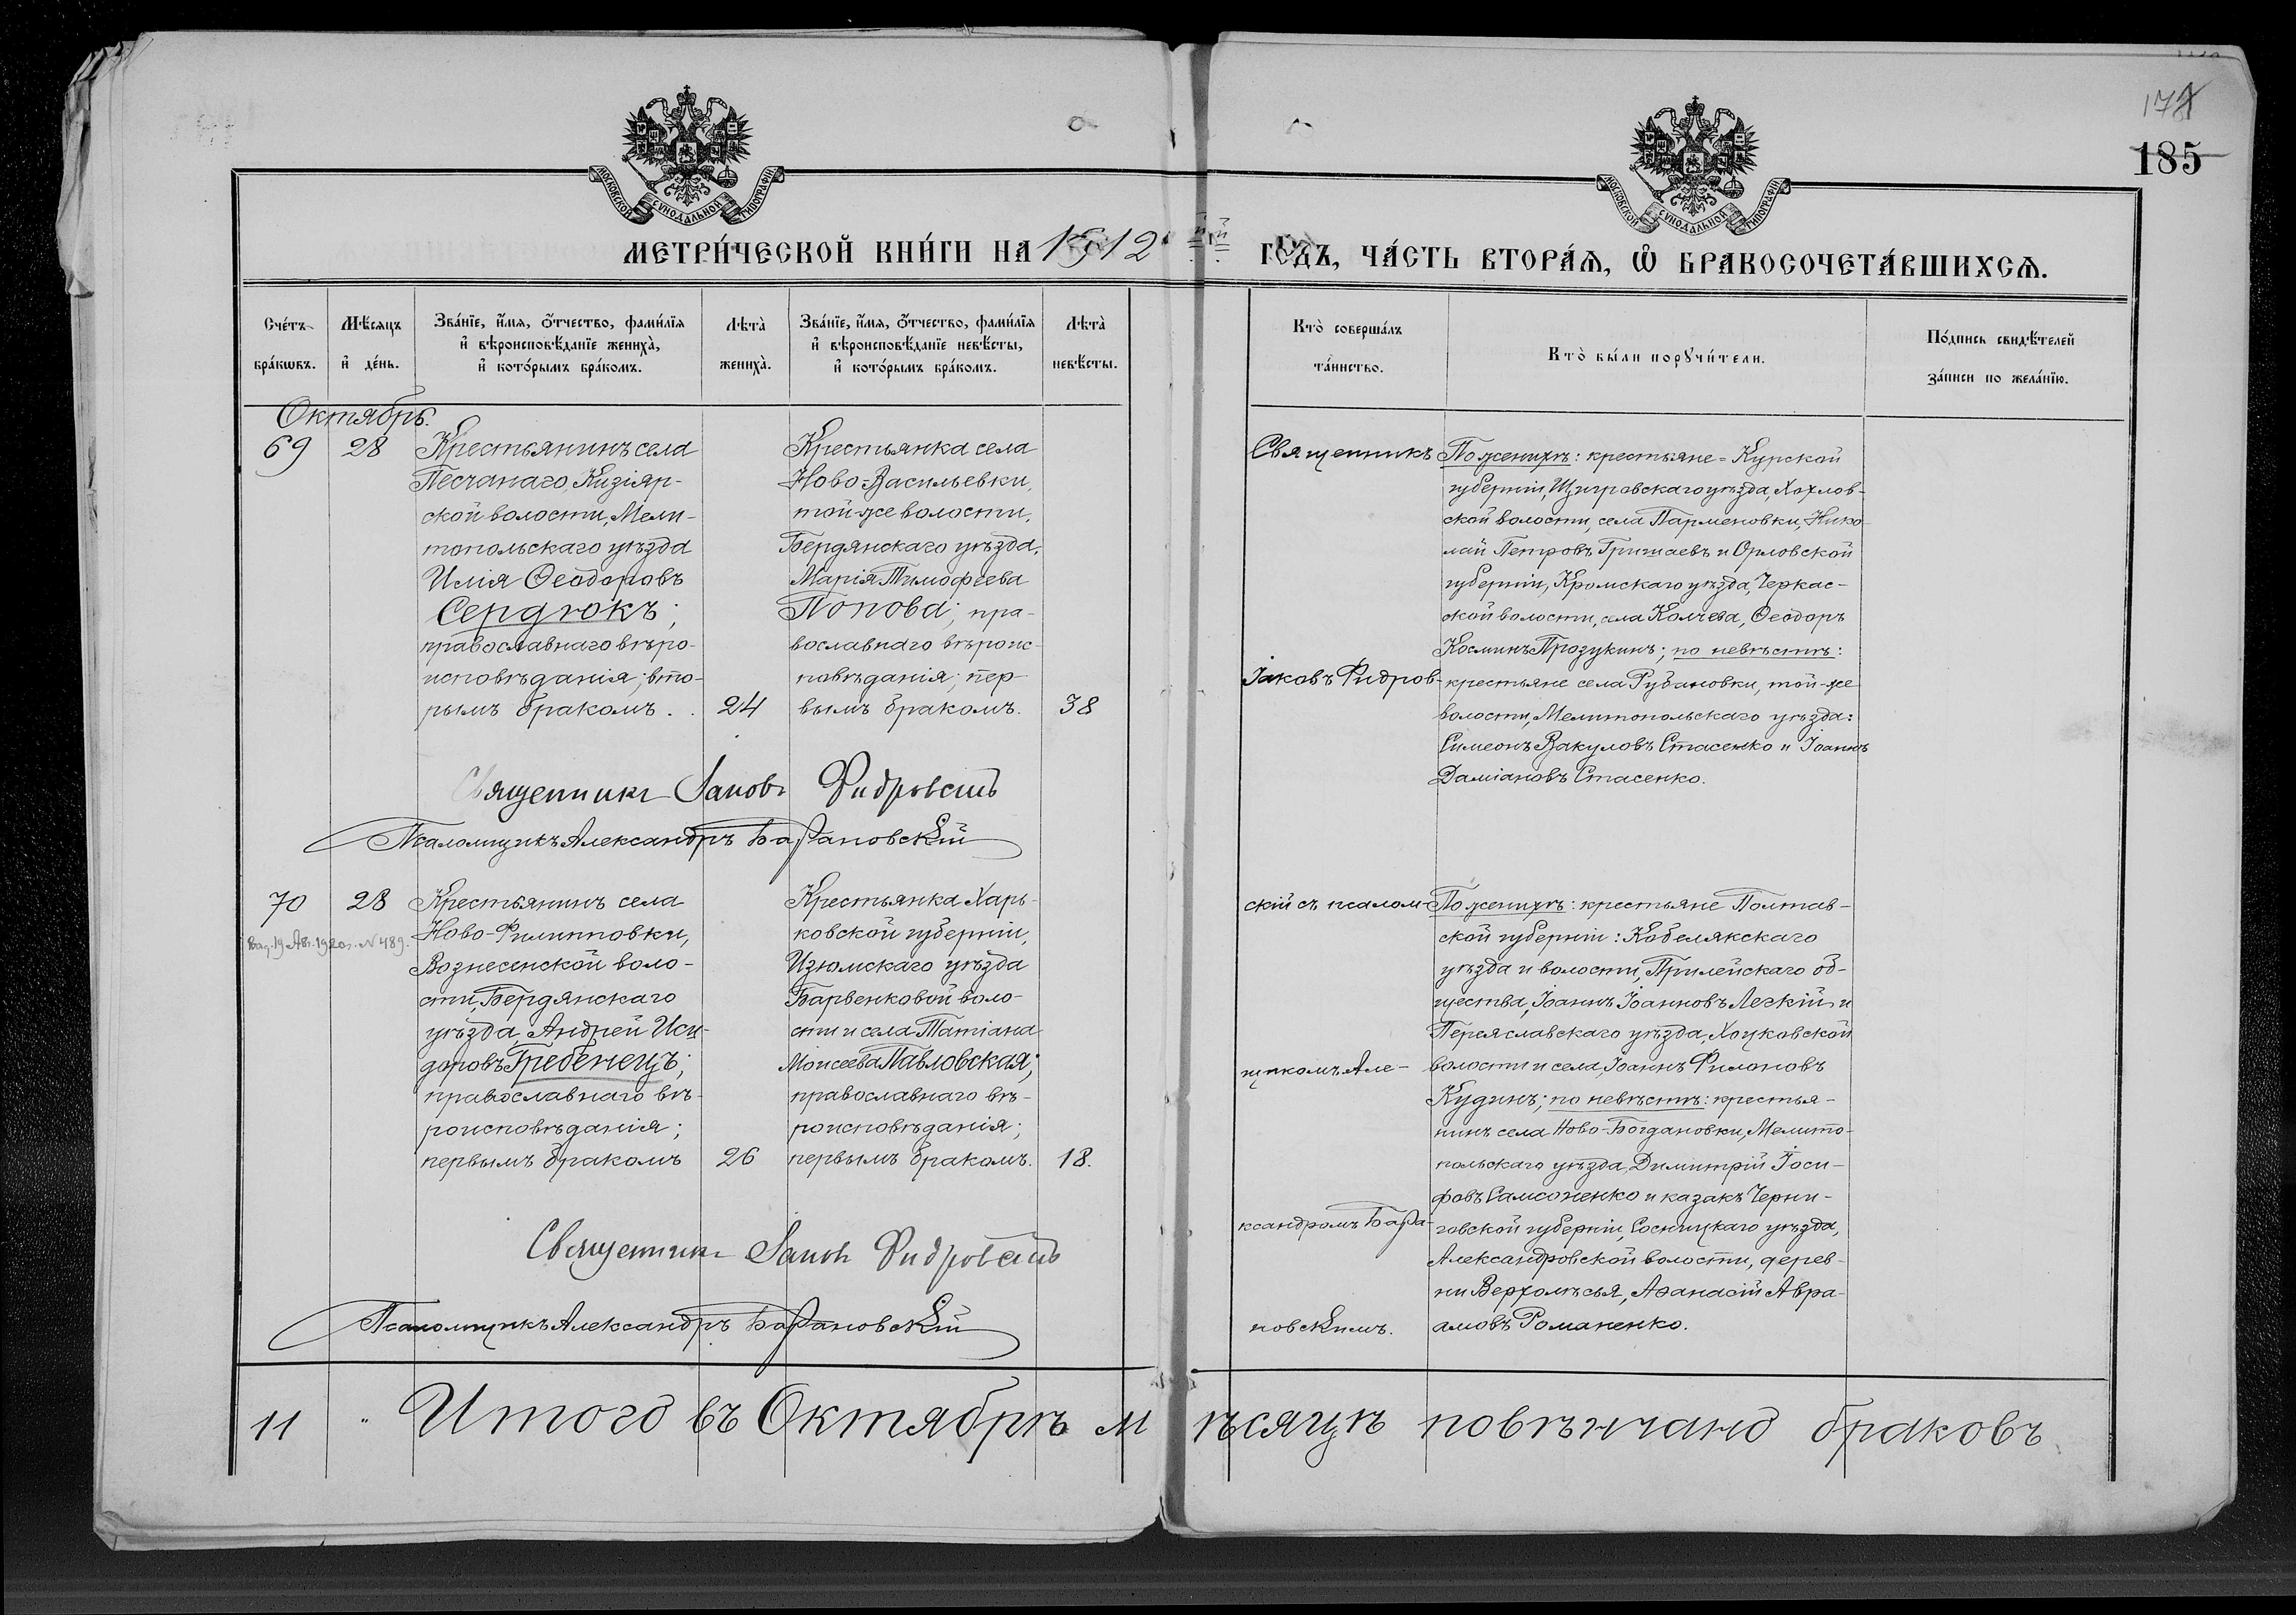 178
185
МОСКОВСКОЙ СѴНОДАЛЬНОЙ ТИПОГРАФІИ
МОСКОВСКОЙ СѴНОДАЛЬНОЙ ТИПОГРАФІИ
МЕТРИ́ЧЕСКОЙ КНИ́ГИ НА 1912 ый ГО́ДЪ, ЧА́СТЬ ВТОРА́Я, Ѡ҆ БРАКОСОЧЕТА́ВШИХСѦ.
Сче́тъ бра́кѡвъ.
Мѣ́сяцъ и҆ де́нь.
Зва́нїе, и҆́мя, ѻ҆́тчество, фами́лїя
и҆ вѣроисповѣ́данїе жениха̀,
и҆ кото́рымъ бра́комъ.
Лѣта̀ жениха̀.
Зва́нїе, и҆́мя, ѻ҆́тчество, фами́лїя
и҆ вѣроисповѣ́данїе невѣ́сты,
и҆ кото́рымъ бра́комъ.
Лѣта̀ невѣ́сты.
Кто̀ соверша́лъ та́инство.
Кто̀ бы́ли порꙋчи́тели.
По́дпись свидѣ́телей за́писи по жела́нїю.
Октябрь.
69
28
Крестьянинъ села
Песчанаго, Кизіяр-
ской волости, Мели-
топольскаго уѣзда
Илія Ѳеодоровъ
Сердюкъ;
православнаго вѣро-
исповѣданія; вто-
рымъ бракомъ.
24
Крестьянка села
Ново-Васильевки,
той-же волости,
Бердянскаго уѣзда,
Марія Тимофеева
Попова; пра-
вославнаго вѣроис-
повѣданія; пер-
вымъ бракомъ.
38
Священникъ
Іаковъ Фидров-
По женихѣ: крестьяне = Курской
губерніи, Щигровскаго уѣзда, Хохлов-
ской волости, села Парменовки, Нико-
лай Петровъ Гришаевъ и Орловской
губерніи, Кромскаго уѣзда, Черкас-
ской волости, села Колчева, Ѳеодоръ
Косминъ Прозукинъ; по невѣстѣ:
крестьяне села Рубановки, той-же
волости, Мелитопольскаго уѣзда:
Симеонъ Вакуловъ Стасенко и Іоаннъ
Даміановъ Стасенко.
Священникъ Іаковъ Фидровскій
Псаломщикъ Александръ Барановскій
70
28
Выд. 19 Авг. 1920 г. № 489.
Крестьянинъ села
Ново-Филипповки,
Вознесенской воло-
сти, Бердянскаго
уѣзда, Андрей Иси-
доровъ Гребенецъ;
православнаго вѣ-
роисповѣданія;
первымъ бракомъ
26
Крестьянка Харь-
ковской губерніи,
Изюмскаго уѣзда
Барвенковой воло-
сти и села Татіана
Моисеева Павловская;
православнаго вѣ-
роисповѣданія;
первымъ бракомъ.
18.
скій съ псалом-
щикомъ Але-
ксандромъ Бара-
новскимъ.
По женихѣ: крестьяне Полтав-
ской губерніи: Кобелякскаго
уѣзда и волости, Прилейскаго об-
щества, Іоаннъ Іоанновъ Легкій и
Переяславскаго уѣзда, Хоцковской
волости и села, Іоаннъ Филоновъ
Кудинъ; по невѣстѣ: крестья-
нинъ села Ново-Богдановки, Мелито-
польскаго уѣзда, Димитрій Іоси-
фовъ Самсоненко и казакъ Черни-
говской губерніи, Сосницкаго уѣзда,
Александровской волости, дерев-
ни Верхолѣсья, Аѳанасій Авра-
амовъ Романенко.
Священникъ Іаковъ Фидровскій
Псаломщикъ Александръ Барановскій
11 " Итого въ Октябрѣ мѣсяцѣ повѣнчано браковъ